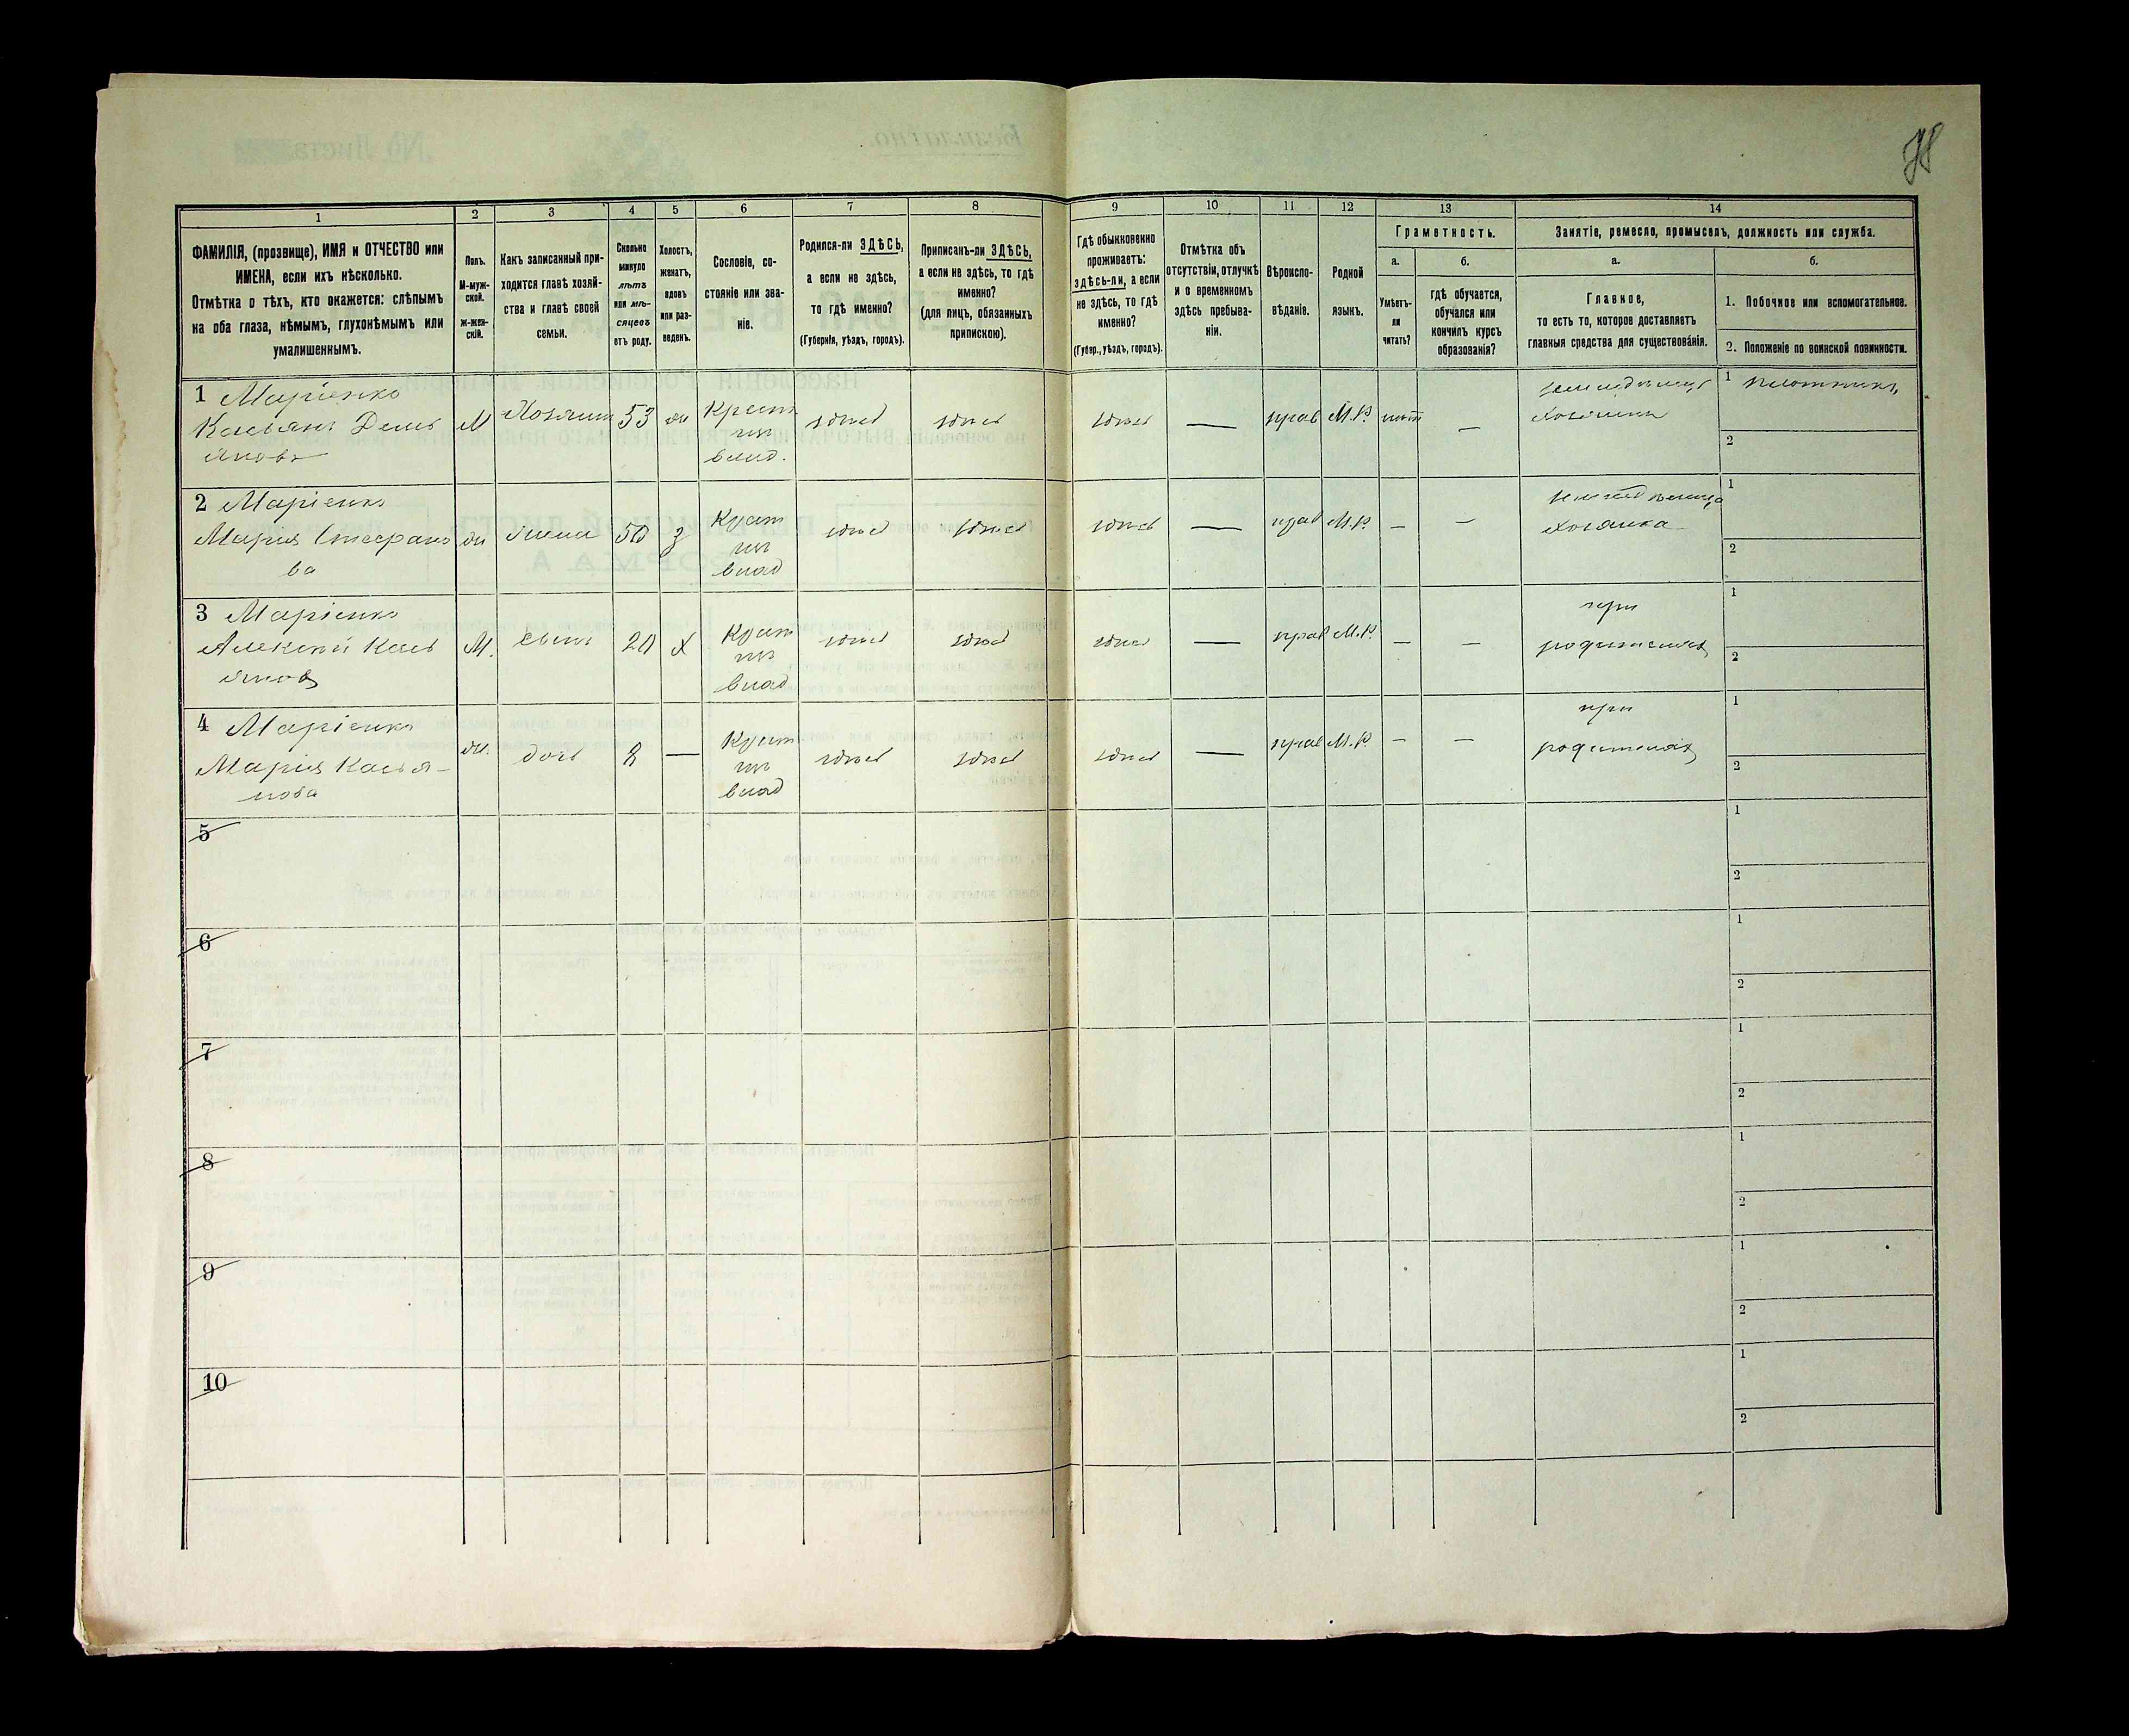 78
1 2 3 4 5 6 7 8 9 10 11 12 13 14
ФАМИЛІЯ, (прозвище), ИМЯ и ОТЧЕСТВО или
ИМЕНА, если ихъ нѣсколько.
Отмѣтка о тѣхъ, кто окажется: слѣпымъ
на оба глаза, нѣмымъ, глухонѣмымъ или
умалишеннымъ.
Полъ.
М-муж-
ской.
Ж-жен-
скій.
Какъ записанный при-
ходится главѣ хозяй-
ства и главѣ своей
семьи.
Сколько
минуло
лѣтъ
или мѣ-
сяцевъ
отъ роду.
Холостъ,
женатъ,
вдовъ
или раз-
веденъ.
Сословіе, со-
стояніе или зва-
ніе.
Родился-ли ЗДѢСЬ,
а если не здѣсь,
то гдѣ именно?
(Губернія, уѣздъ, городъ).
Приписанъ-ли ЗДѢСЬ,
а если не здѣсь, то гдѣ
именно?
(для лицъ, обязанныхъ
припискою).
Гдѣ обыкновенно
проживаетъ:
здѣсь-ли, а если
не здѣсь, то гдѣ
именно?
(Губер., уѣздъ, городъ).
Отмѣтка объ
отсутствіи, отлучкѣ
и о временномъ
здѣсь пребыва-
ніи.
Вѣроиспо-
вѣданіе.
Родной
языкъ.
Грамотность.
а.
Умѣетъ-
ли
читать?
б.
гдѣ обучается,
обучался или
кончилъ курсъ
образованія?
Занятіе, ремесло, промыселъ, должность или служба.
а.
Главное,
то есть то, которое доставляетъ
главныя средства для существованія.
б.
1. Побочное или вспомогательное.
2. Положеніе по воинской повинности.
1 Маріенко
Касьянъ Демь
яновъ
М Хозяинъ 53 ж
Крест
изъ
влад.
здѣсь здѣсь здѣсь — прав М.Р. нѣт —
земледѣлецъ
хозяинъ
1 плотникъ
2
2 Маріенко
Мария Стефано
ва
ж жена 50 з
Крест
изъ
влад
здѣсь здѣсь здѣсь — прав М.Р. — —
хозяйка
1
2
3 Маріенко
Алексѣй Кась
яновъ
М. сынъ 20 х
Крест
изъ
влад
здѣсь здѣсь здѣсь — прав М.Р. — —
при
родителяхъ
1
2
4 Маріенко
Мария Касья-
нова
ж. дочь 8 —
Крест
изъ
влад
здѣсь здѣсь здѣсь — прав М.Р. — —
при
родителяхъ
1
2
5
1
2
6
1
2
7
1
2
8
1
2
9
1
2
10
1
2